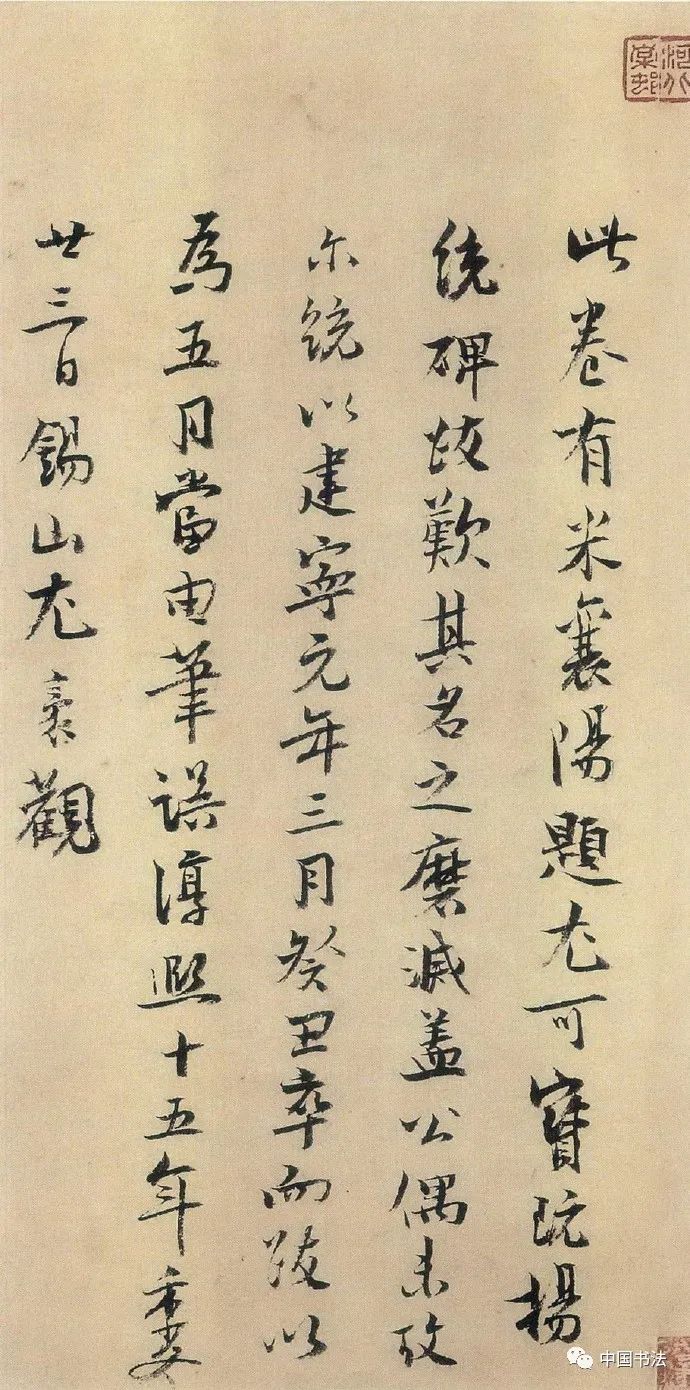 河北棠邨
此卷有米襄陽題尤可寶玩楊
統碑跋歎其名之磨滅蓋公偶未攷
尓統以建寧元年三月癸丑卒而跋以
爲五月當由筆誤淳熙十五年季夏
廿三日錫山尤袤觀
中国书法